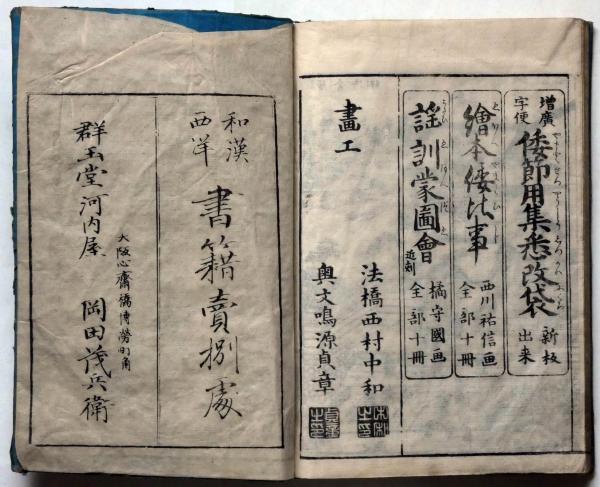 増廣
字便
倭節用集悉改袋
新板
出来
繪本倭比事
西川祐信画
全部十冊
謡訓蒙圖會
近刻
橘守國画
全部十冊
畫工
法橋西村中和
奥文鳴源貞章
貞章
之印
和漢
西洋
書籍賣捌處
大阪心齋橋博勞町角
群玉堂河内屋
岡田茂兵衛